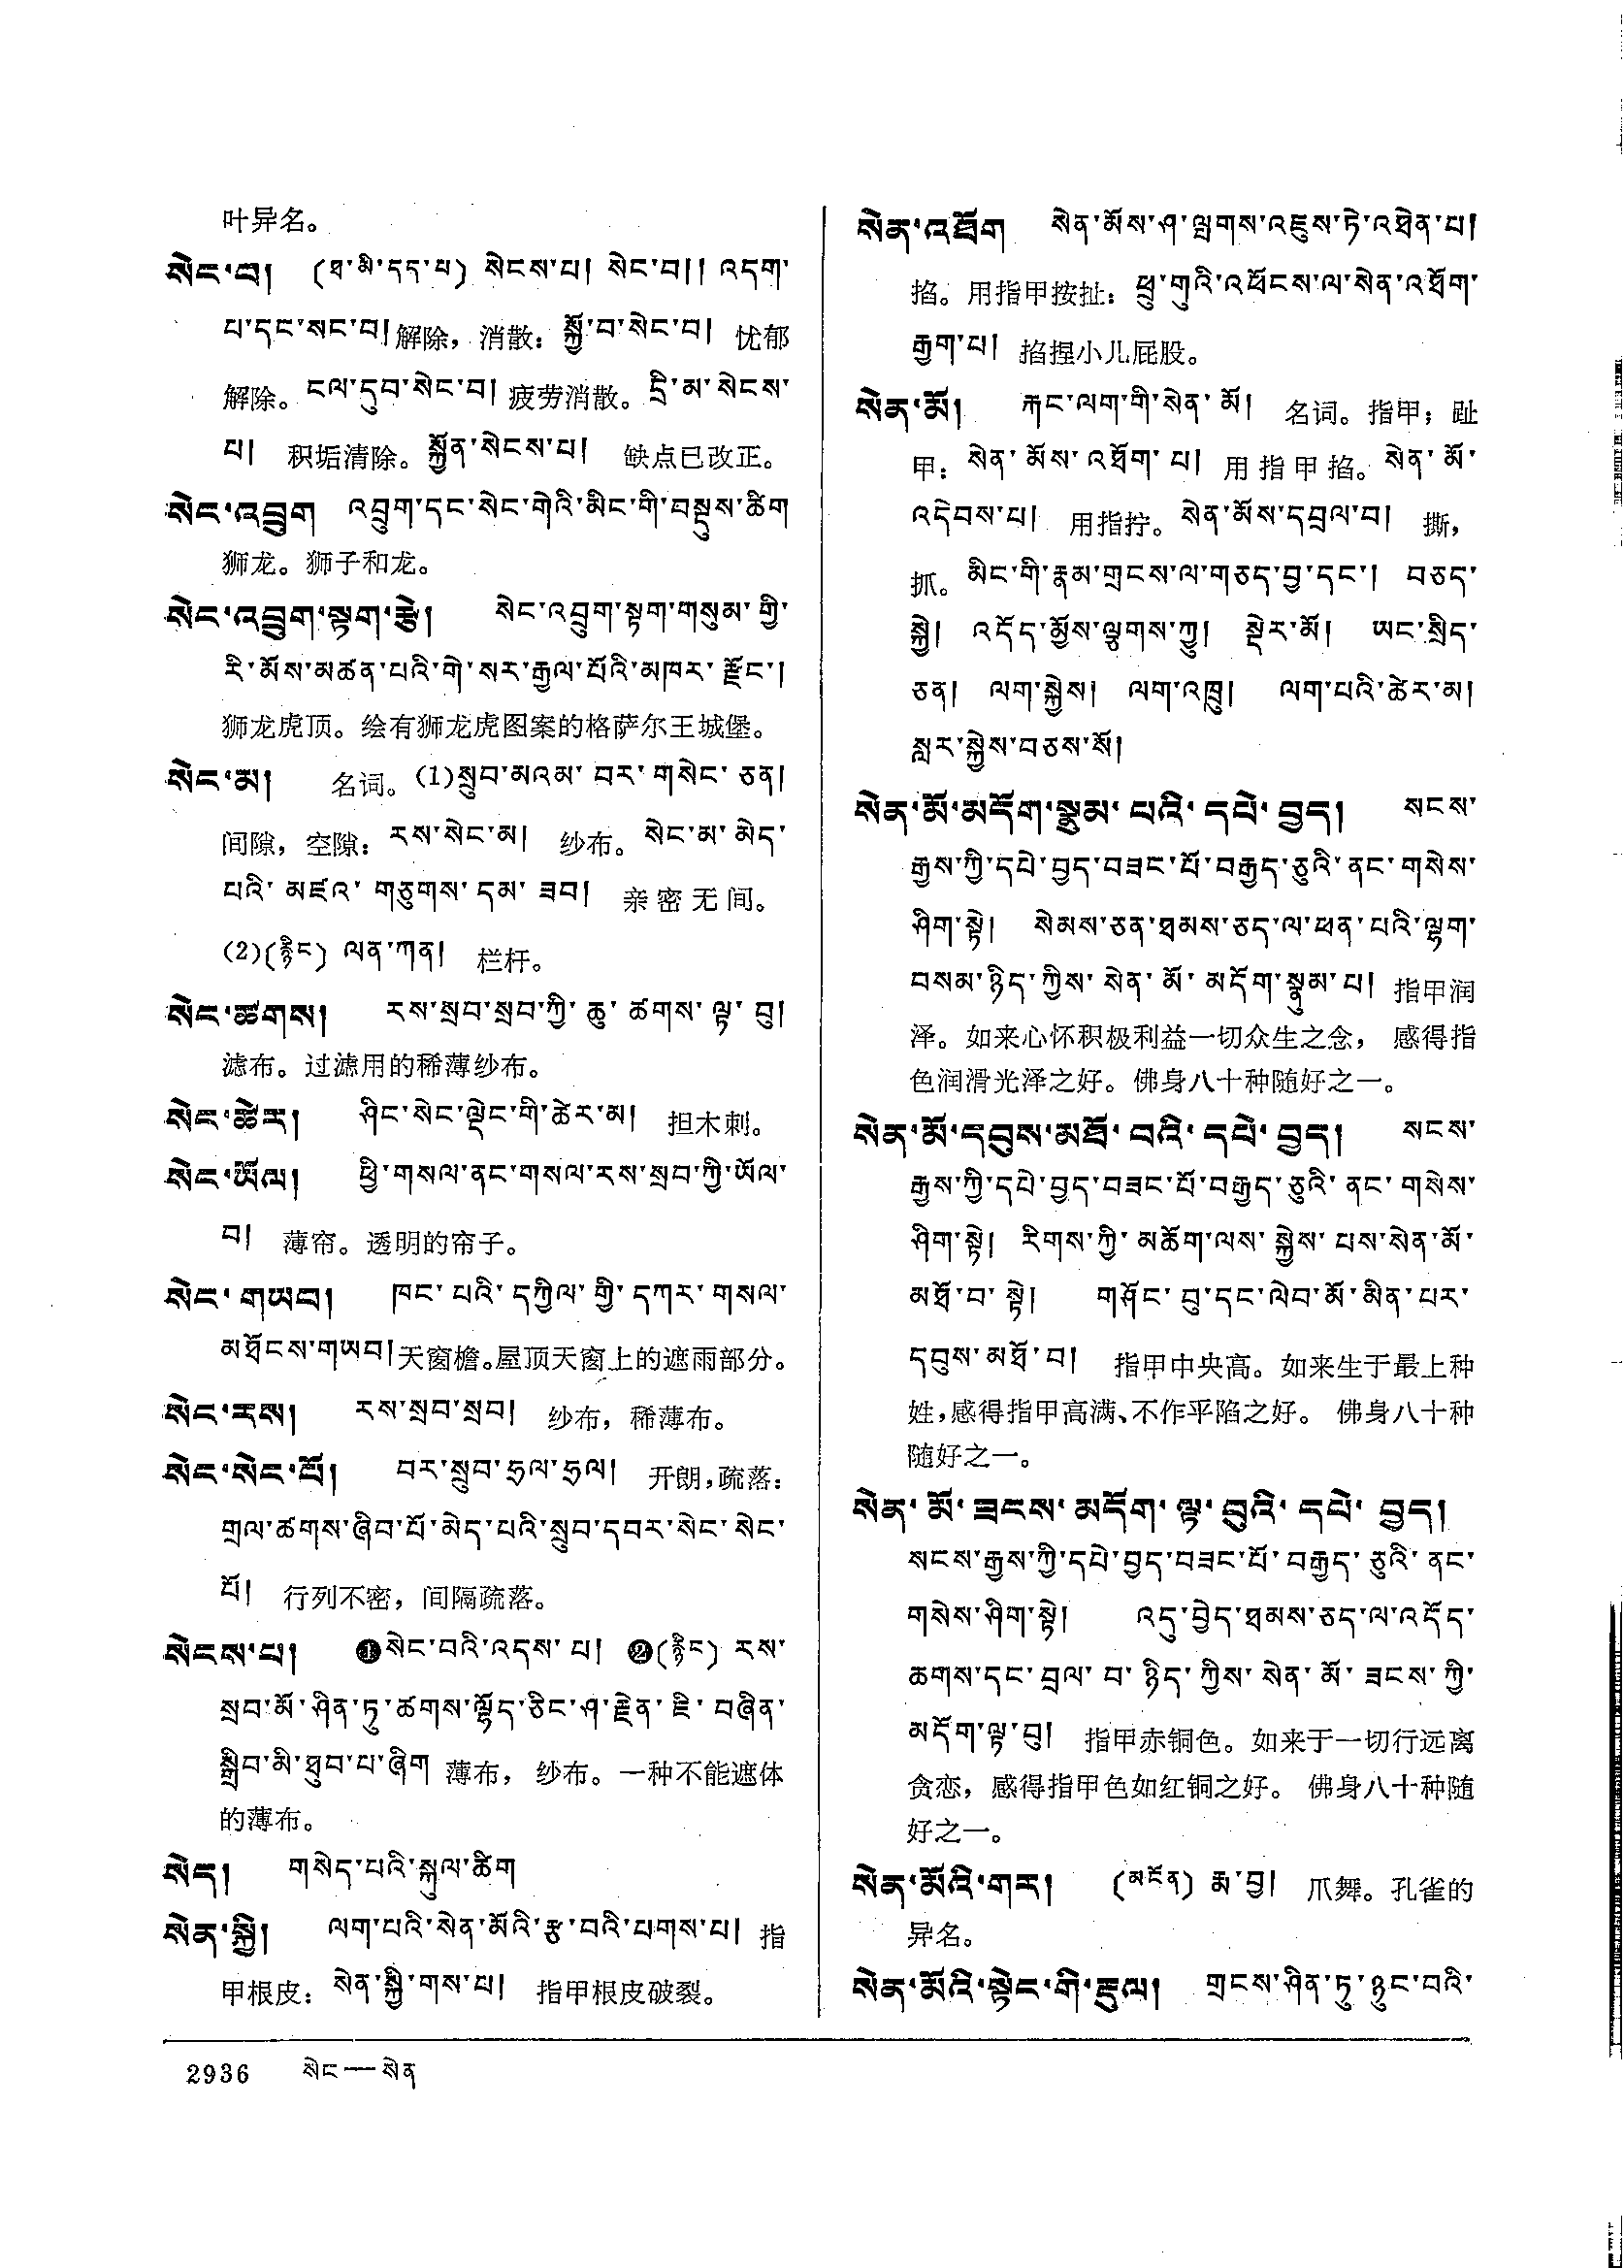 叶异名。
སེང་བ། (ཐ་མི་དད་པ) སེངས་པ། སེང་བ།། འདག་
པ་དང་སང་བ།解除，消散：སྐྱོ་བ་སེང་བ། 忧郁
解除。ངལ་དུབ་སེང་བ།疲劳消散。དྲི་མ་སེངས་
པ། 积垢清除。སྐྱོན་སེངས་པ། 缺点已改正。
སེང་འབྲུག འབྲུག་དང་སེང་གེའི་མིང་གི་བསྡུས་ཚིག
狮龙。狮子和龙。
སེང་འབྲུག་སྟག་རྩེ། སེང་འབྲུག་སྟག་གསུམ་གྱི་
རི་མོས་མཚན་པའི་གེ་སར་རྒྱལ་པོའི་མཁར་རྫོང་།
狮龙虎顶。绘有狮龙虎图案的格萨尔王城堡。
སེང་མ། 名词。(1)སྲུབ་མའམ་བར་གསེང་ཅན།
间隙，空隙：རས་སེང་མ། 纱布。སེང་མ་མེད་
པའི་མཛའ་གཅུགས་དམ་ཟབ། 亲密无间。
(2)(རྙིང) ལན་ཀན། 栏杆。
སེང་ཚགས། རས་སྲབ་སྲབ་ཀྱི་ཆུ་ཚགས་ལྟ་བུ།
滤布。过滤用的稀薄纱布。
སེང་ཚེར། ཤིང་སེང་ལྡེང་གི་ཚེར་མ། 担木刺。
སེང་ཡོལ། ཕྱི་གསལ་ནང་གསལ་རས་སྲབ་ཀྱི་ཡོལ་
བ། 薄帘。透明的帘子。
སེང་གཡབ། ཁང་པའི་དཀྱིལ་གྱི་དཀར་གསལ་
མཐོངས་གཡབ།天窗檐。屋顶天窗上的遮雨部分。
སེང་རས། རས་སྲབ་སྲབ། 纱布，稀薄布。
སེང་སེང་པོ། བར་སྲུབ་ཧྲལ་ཧྲལ། 开朗，疏落：
གྲལ་ཚགས་ཞིབ་པོ་མེད་པའི་སྲུབ་དབར་སེང་སེང་
པོ། 行列不密，间隔疏落。
སེངས་པ། ❶སེང་བའི་འདས་པ། ❷(རྙིང) རས་
སྲབ་མོ་ཤིན་ཏུ་ཚགས་ལྷོད་ཅིང་ཤ་རྗེན་ཇི་བཞིན་
སྒྲིབ་མི་ཐུབ་པ་ཞིག 薄布，纱布。一种不能遮体
的薄布。
སེད། གསེད་པའི་སྐུལ་ཚིག
སེན་སྐྱི། ལག་པའི་སེན་མོའི་རྩ་བའི་པགས་པ། 指
甲根皮：སེན་སྐྱི་གས་པ། 指甲根皮破裂。
སེན་འཐོག སེན་མོས་ཤ་ལྤགས་འཇུས་ཏེ་འཐེན་པ།
掐。用指甲按扯：ཕྲུ་གུའི་འཕོངས་ལ་སེན་འཐོག་
རྒྱག་པ། 掐捏小儿屁股。
སེན་མོ། རྐང་ལག་གི་སེན་མོ། 名词。指甲；趾
甲：སེན་མོས་འཐོག་པ། 用指甲掐。སེན་མོ་
འདེབས་པ། 用指拧。སེན་མོས་དབྲལ་བ། 撕，
抓。མིང་གི་རྣམ་གྲངས་ལ་གཅད་བྱ་དང་། བཅད་
སྐྱེ། འདོད་མྱོས་ལྕགས་ཀྱུ། སྡེར་མོ། ཡང་སྲིད་
ཅན། ལག་སྐྱེས། ལག་འཁྲུ། ལག་པའི་ཚེར་མ།
སླར་སྐྱེས་བཅས་སོ།
སེན་མོ་མདོག་སྣུམ་པའི་དཔེ་བྱད། སངས་
རྒྱས་ཀྱི་དཔེ་བྱད་བཟང་པོ་བརྒྱད་ཅུའི་ནང་གསེས་
ཤིག་སྟེ། སེམས་ཅན་ཐམས་ཅད་ལ་ཕན་པའི་ལྷག་
བསམ་ཉིད་ཀྱིས་སེན་མོ་མདོག་སྣུམ་པ། 指甲润
泽。如来心怀积极利益一切众生之念，感得指
色润滑光泽之好。佛身八十种随好之一。
སེན་མོ་དབུས་མཐོ་བའི་དཔེ་བྱད། སངས་
རྒྱས་ཀྱི་དཔེ་བྱད་བཟང་པོ་བརྒྱད་ཅུའི་ནང་གསེས་
ཤིག་སྟེ། རིགས་ཀྱི་མཆོག་ལས་སྐྱེས་པས་སེན་མོ་
མཐོ་བ་སྟེ། གཤོང་བུ་དང་ལེབ་མོ་མིན་པར་
དབུས་མཐོ་བ། 指甲中央高。如来生于最上种
姓，感得指甲高满、不作平陷之好。佛身八十种
随好之一。
སེན་མོ་ཟངས་མདོག་ལྟ་བུའི་དཔེ་བྱད།
སངས་རྒྱས་ཀྱི་དཔེ་བྱད་བཟང་པོ་བརྒྱད་ཅུའི་ནང་
གསེས་ཤིག་སྟེ། འདུ་བྱེད་ཐམས་ཅད་ལ་འདོད་
ཆགས་དང་བྲལ་བ་ཉིད་ཀྱིས་སེན་མོ་ཟངས་ཀྱི་
མདོག་ལྟ་བུ། 指甲赤铜色。如来于一切行远离
贪恋，感得指甲色如红铜之好。佛身八十种随
好之一。
སེན་མོའི་གར། (མངོན) རྨ་བྱ། 爪舞。孔雀的
异名。
སེན་མོའི་སྟེང་གི་རྡུལ། གྲངས་ཤིན་ཏུ་ཉུང་བའི་
2936 སེང — སེན